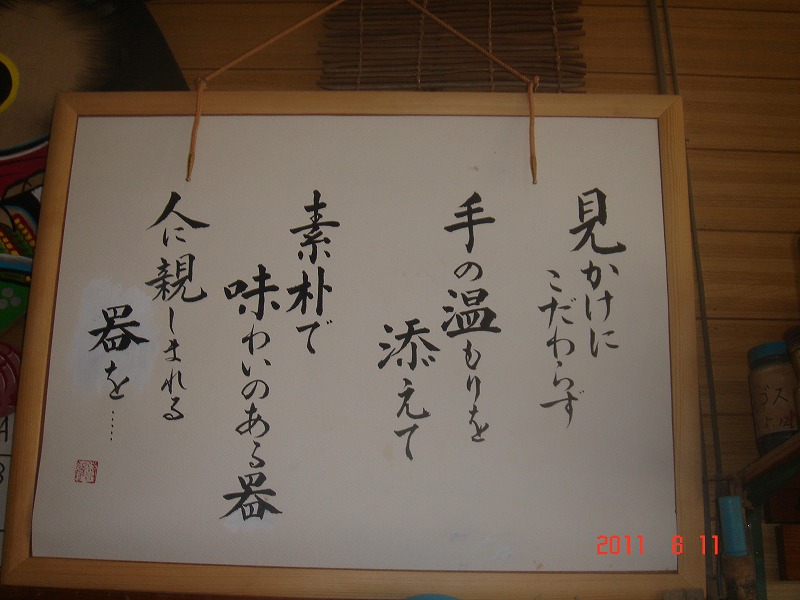 見かけに
こだわらず
手の温もりを
添えて
素朴で
味わいのある器
人に親しまれる
器を……
ゴス
2011 8 11